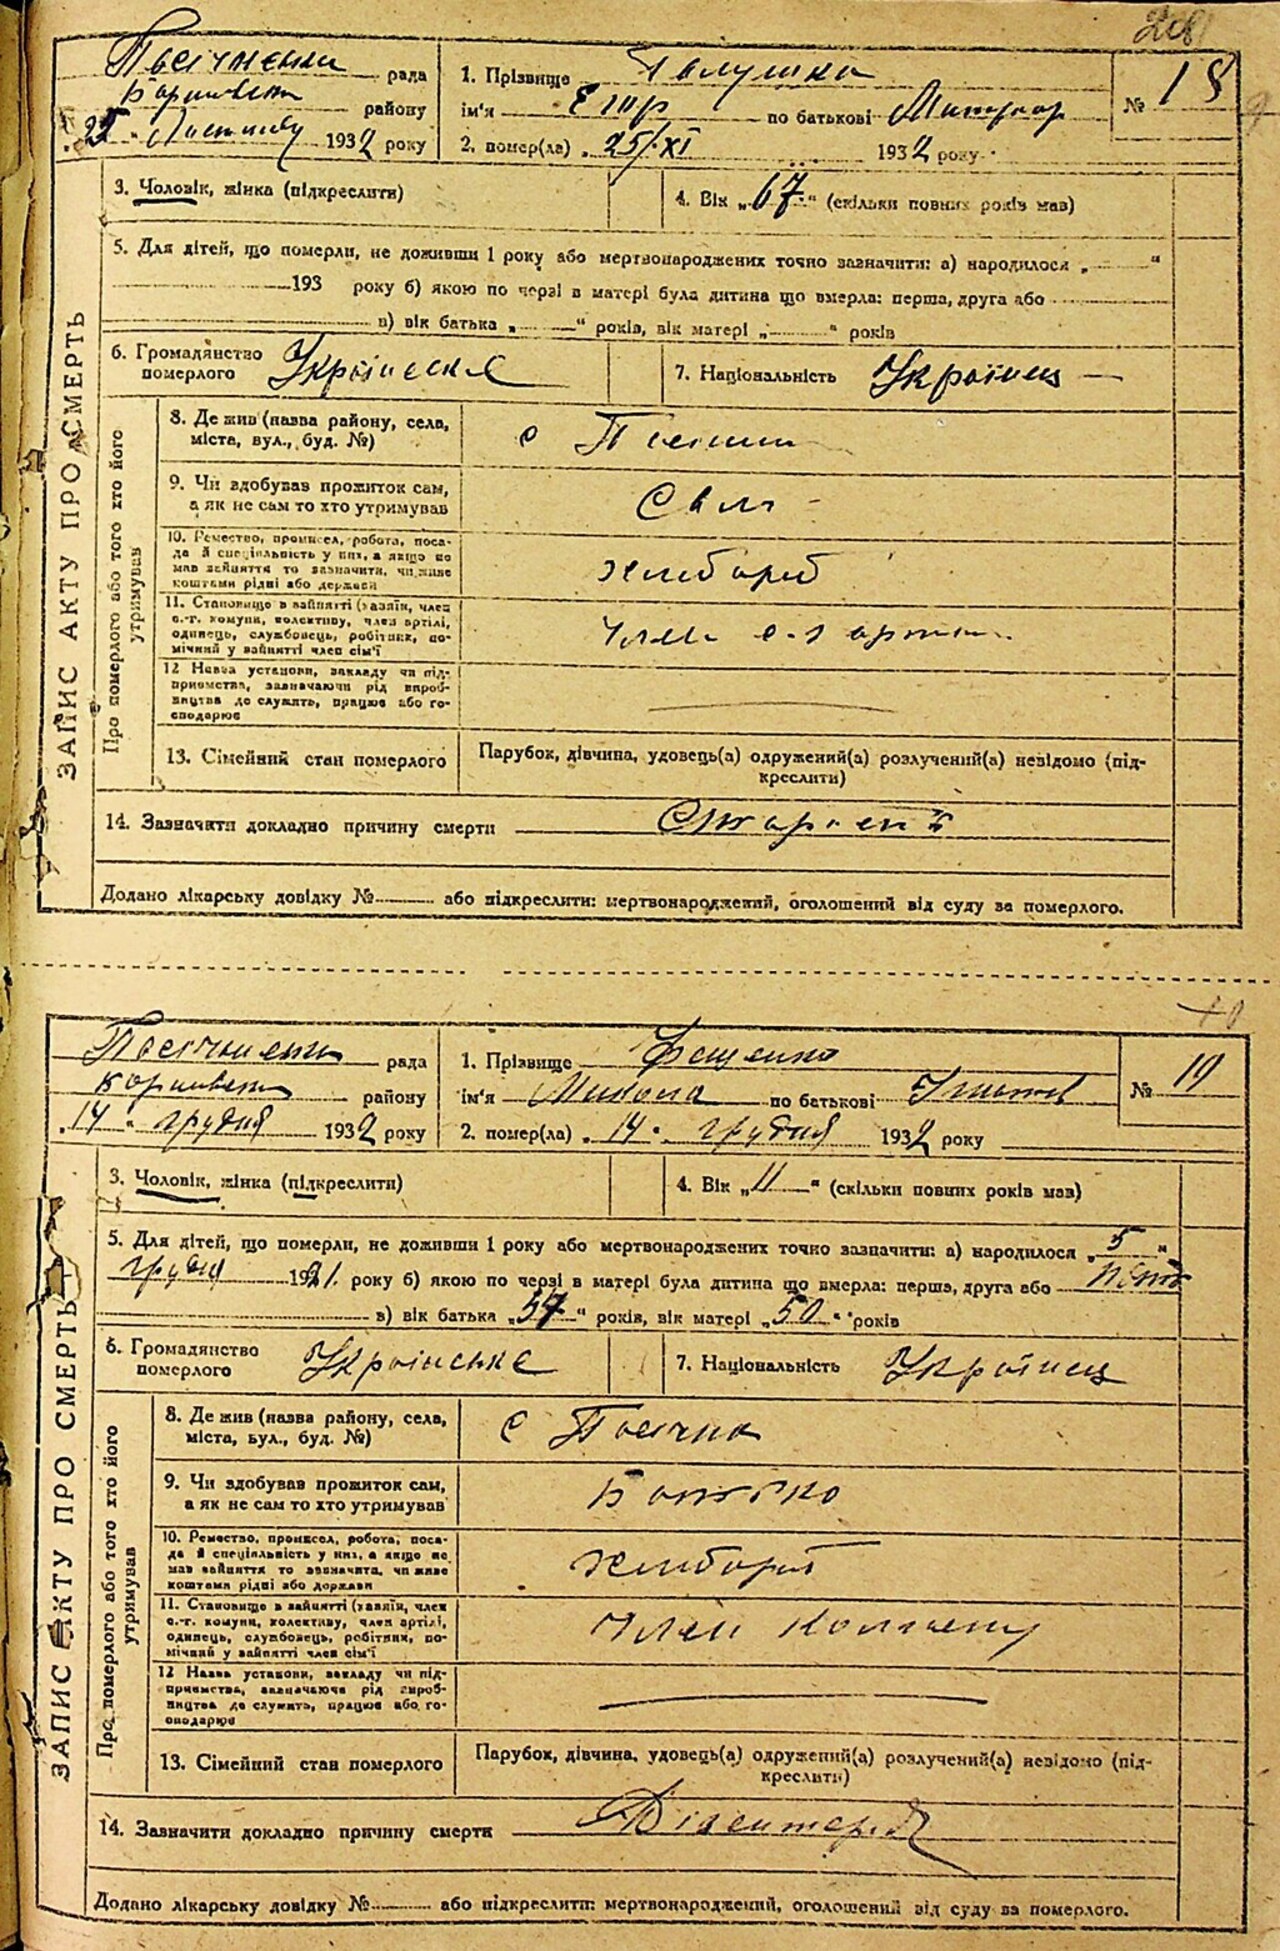 208
рада
району
1932 року
1. Прізвище Галушка
ім'я Егор по батькові
2. помер(ла) „25/XI 1932 року
№ 18
3. Чоловік, жінка (підкреслити)
4. Вік „67“ (скільки повних років мав)
5. Для дітей, що померли, не доживши 1 року або мертвонароджених точно зазначити: а) народилося „ “
193 року б) якою по черзі в матері була дитина що вмерла: перша, друга або
в) вік батька „ “ років, вік матері „ “ років
6. Громадянство
померлого Українське
7. Національність Українець
ЗАПИС АКТУ ПРО СМЕРТЬ
Про померлого або того хто його
утримував
8. Де жив (назва району, села,
міста, вул., буд. №)
с
9. Чи здобував прожиток сам,
а як не сам то хто утримував
Сам
10. Ремество, промисел, робота, поса-
да й спеціяльність у них, а якщо не
мав зайняття то зазначити, чи живе
коштами рідні або держави
хлібороб
11. Становище в зайнятті (хазяїн, член
с.-г. комуни, колективу, член артілі,
одинець, службовець, робітник, по-
мічний у зайнятті член сім'ї
Член с-г артілі
12 Назва установи, закладу чи під-
приємства, зазначаючи рід вироб-
ництва де служить, працює або го-
сподарює
13. Сімейний стан померлого
Парубок, дівчина, удовець(а) одружений(а) розлучений(а) невідомо (під-
креслити)
14. Зазначити докладно причину смерти
Додано лікарську довідку № або підкреслити: мертвонароджений, оголошений від суду за померлого.
рада
району
„14“ грудня 1932 року
1. Прізвище Фещенко
ім'я Микола по батькові
2. помер(ла) „14“ грудня 1932 року
№ 19
3. Чоловік, жінка (підкреслити)
4. Вік „11“ (скільки повних років мав)
5. Для дітей, що померли, не доживши 1 року або мертвонароджених точно зазначити: а) народилося „5“
грудня 1921 року б) якою по черзі в матері була дитина що вмерла: перша, друга або
в) вік батька „57“ років, вік матері „50“ років
6. Громадянство
померлого Українське
7. Національність Українець
ЗАПИС АКТУ ПРО СМЕРТЬ
Про померлого або того хто його
утримував
8. Де жив (назва району, села,
міста, вул., буд. №)
с
9. Чи здобував прожиток сам,
а як не сам то хто утримував
Батько
10. Ремество, промисел, робота, поса-
да й спеціяльність у них, а якщо не
мав зайняття то зазначити, чи живе
коштами рідні або держави
хлібороб
11. Становище в зайнятті (хазяїн, член
с.-г. комуни, колективу, член артілі,
одинець, службовець, робітник, по-
мічний у зайнятті член сім'ї
Член колгоспу
12 Назва установи, закладу чи під-
приємства, зазначаючи рід вироб-
ництва де служить, працює або го-
сподарює
13. Сімейний стан померлого
Парубок, дівчина, удовець(а) одружений(а) розлучений(а) невідомо (під-
креслити)
14. Зазначити докладно причину смерти
Додано лікарську довідку № або підкреслити: мертвонароджений, оголошений від суду за померлого.